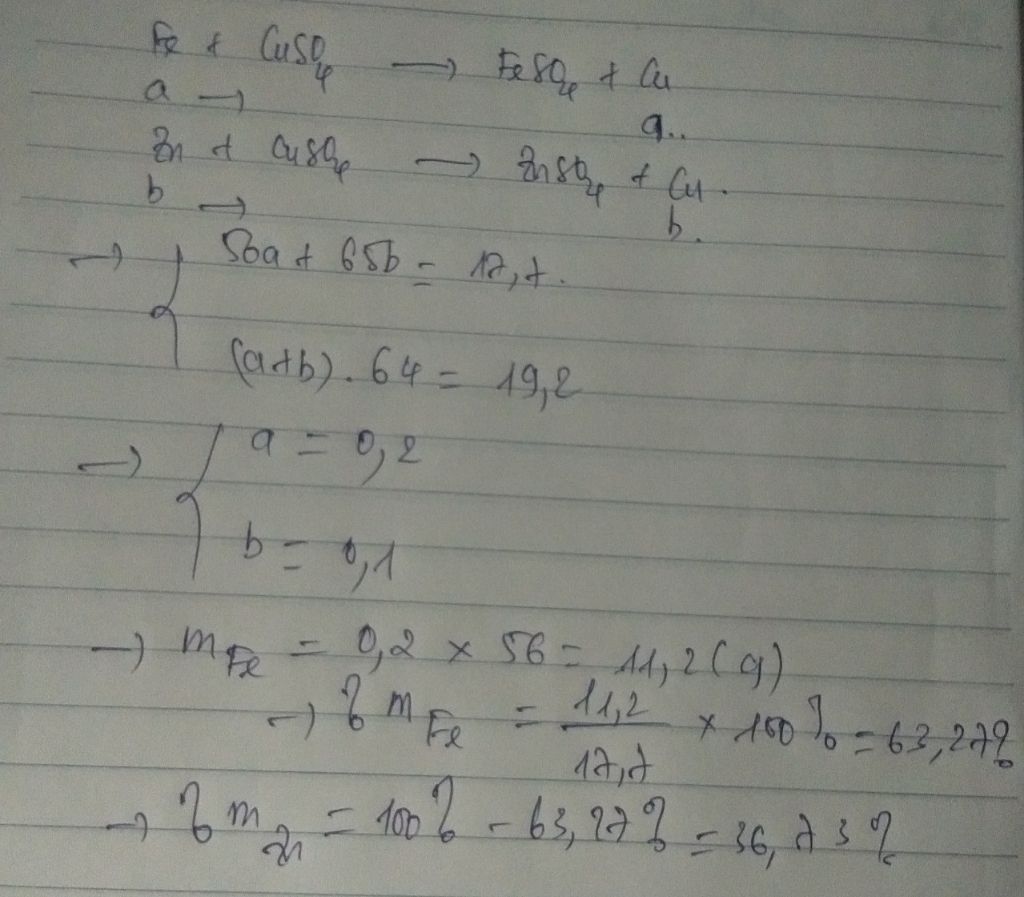 Fe + CuSO₄ → FeSO₄ + Cu
a → a..
Zn + CuSO₄ → ZnSO₄ + Cu.
b → b.
→ { 56a + 65b = 17,7.
(a+b). 64 = 19,2
→ { a = 0,2
b = 0,1
→ m Fe = 0,2 × 56 = 11,2 (g)
→ % m Fe = 11,2 / 17,7 × 100% = 63,27%
→ % m Zn = 100% - 63,27% = 36,73%